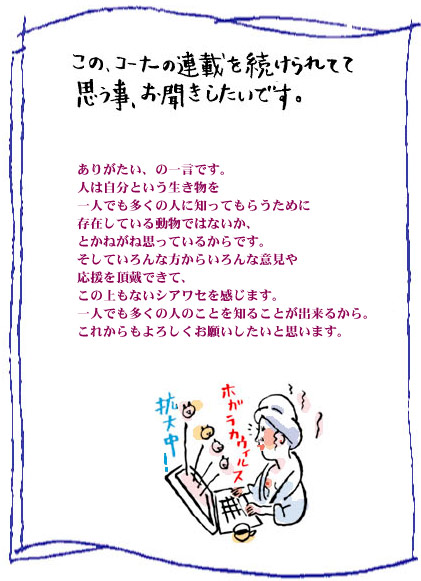 この、コーナーの連載を続けられてて
思う事、お聞きしたいです。
ありがたい、の一言です。
人は自分という生き物を
一人でも多くの人に知ってもらうために
存在している動物ではないか、
とかねがね思っているからです。
そしていろんな方からいろんな意見や
応援を頂戴できて、
この上もないシアワセを感じます。
一人でも多くの人のことを知ることが出来るから。
これからもよろしくお願いしたいと思います。
ホガラカウィルス
拡大中！